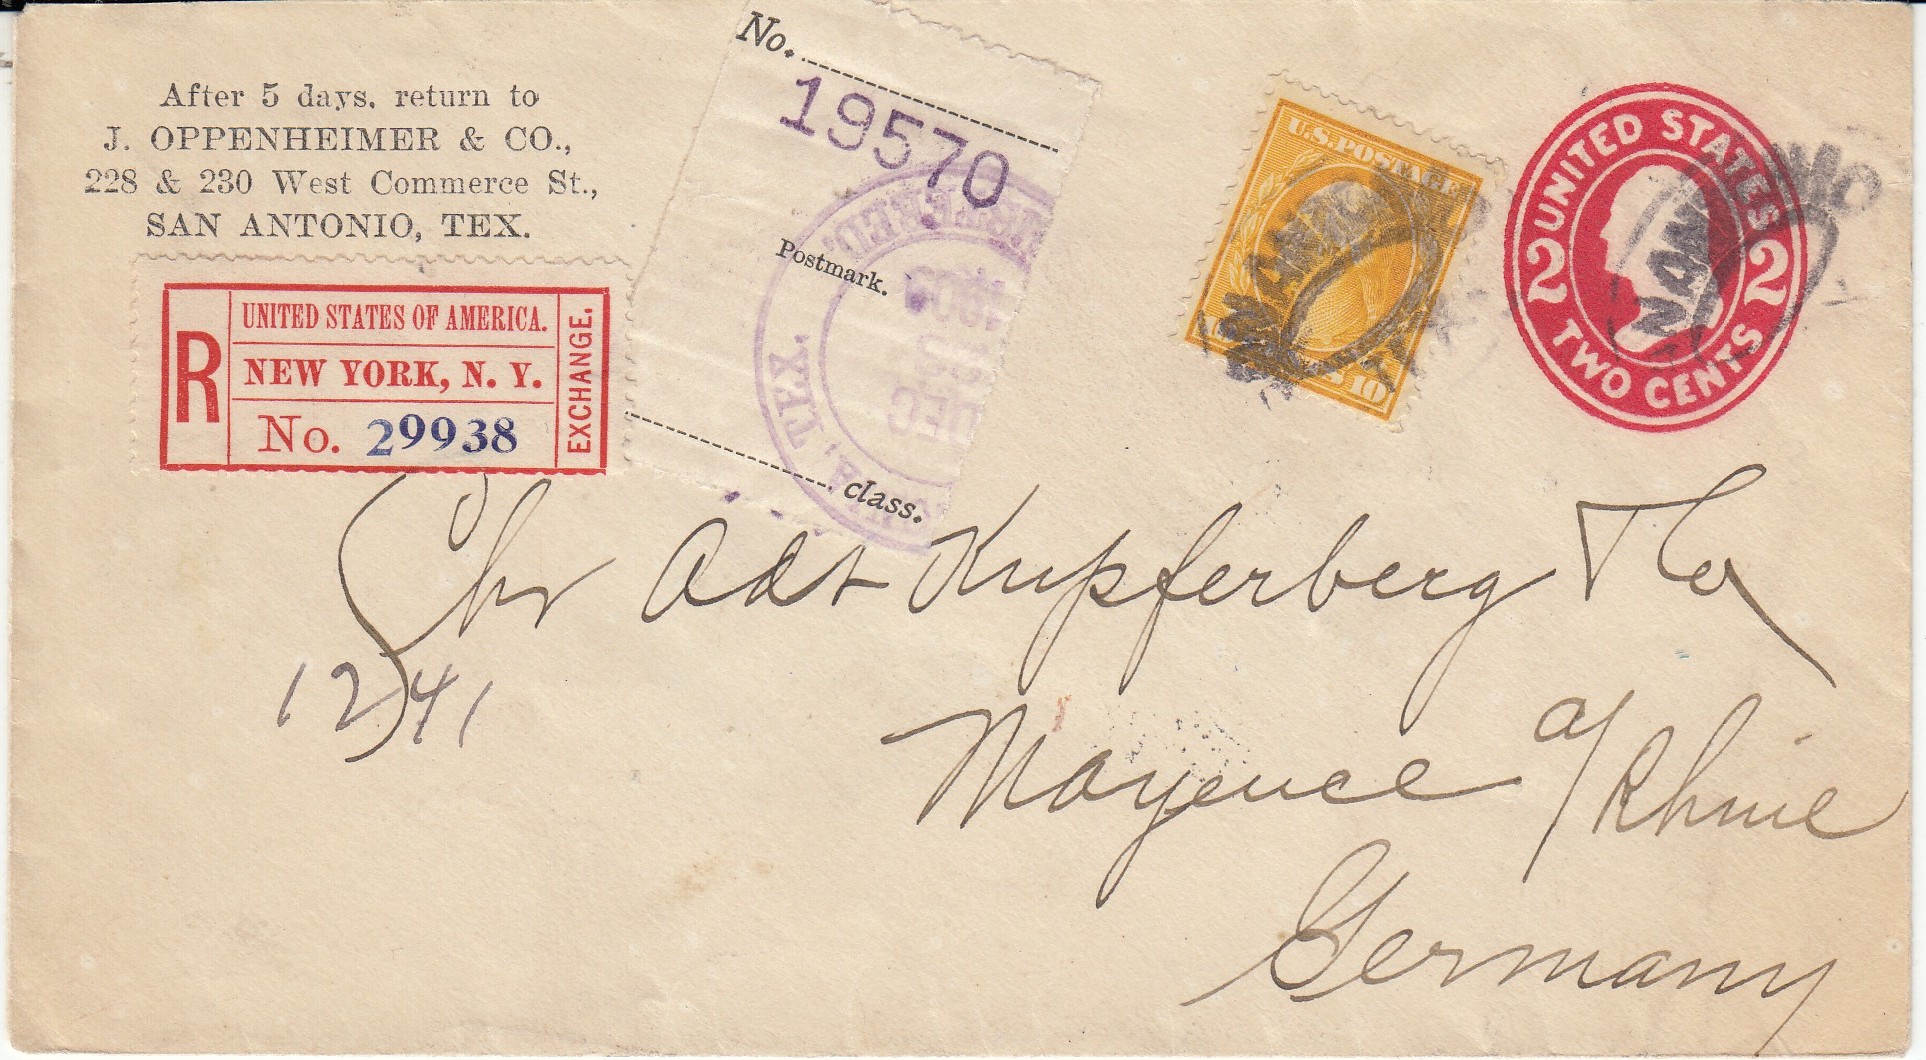 After 5 days, return to
J. OPPENHEIMER & CO.,
228 & 230 West Commerce St.,
SAN ANTONIO, TEX.
No.
19570
Postmark.
class.
REGISTERED.
1909
DEC
TEX.
U.S. POSTAGE
10
SAN ANTONIO
TEX.
UNITED STATES
2 2
TWO CENTS
SAN ANTONIO
R
UNITED STATES OF AMERICA.
NEW YORK, N. Y.
No. 29938
EXCHANGE.
Chr Adt Kupferberg & Co
1241
Mayence a/Rhine
Germany